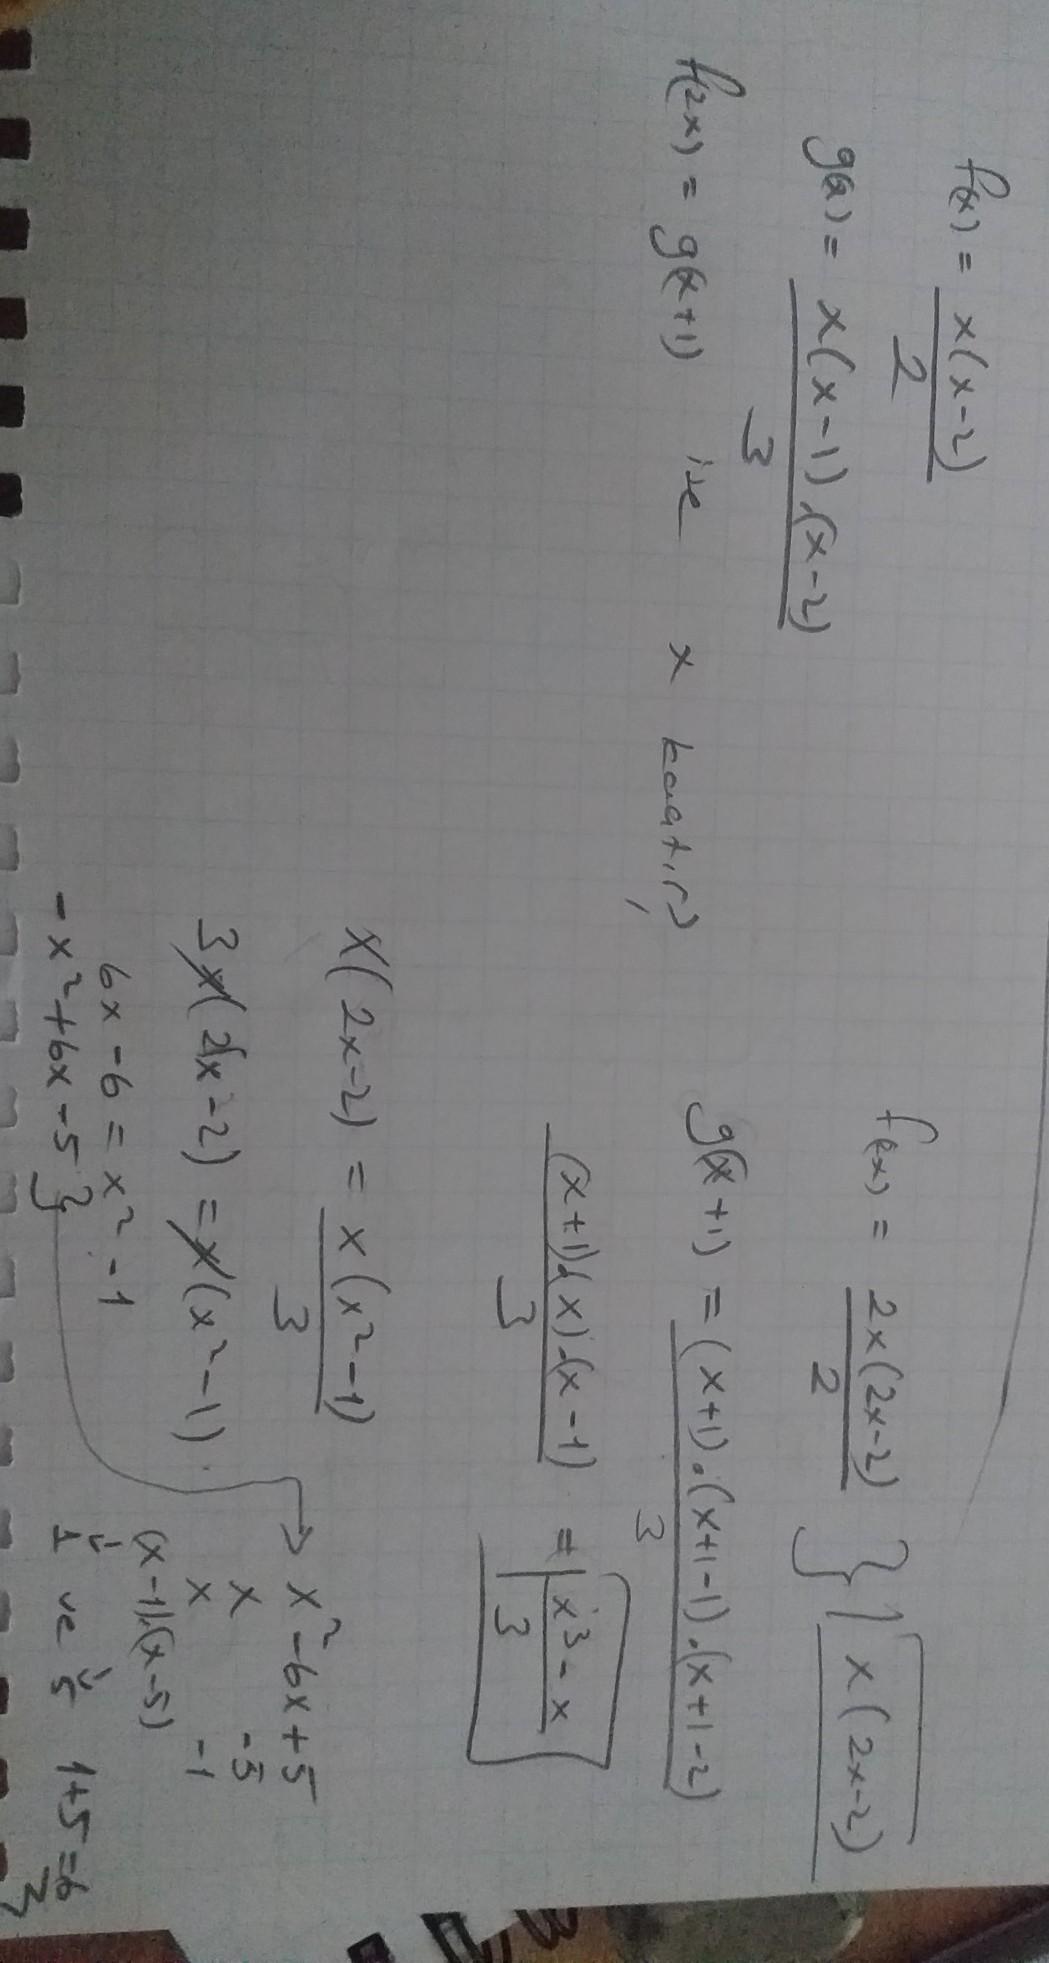 f(x) = x(x-2) / 2
g(x) = x(x-1).(x-2) / 3
f(2x) = g(x+1) ise x kaçtır?
f(x) = 2x(2x-2) / 2 } x(2x-2)
g(x+1) = (x+1).(x+1-1).(x+1-2) / 3
(x+1).(x).(x-1) / 3 = x³-x / 3
x(2x-2) = x(x²-1) / 3
3x(2x-2) = x(x²-1)
6x-6 = x²-1
-x²+6x-5 }
→ x²-6x+5
x -5
x -1
(x-1).(x-5)
1 ve 5 1+5=6